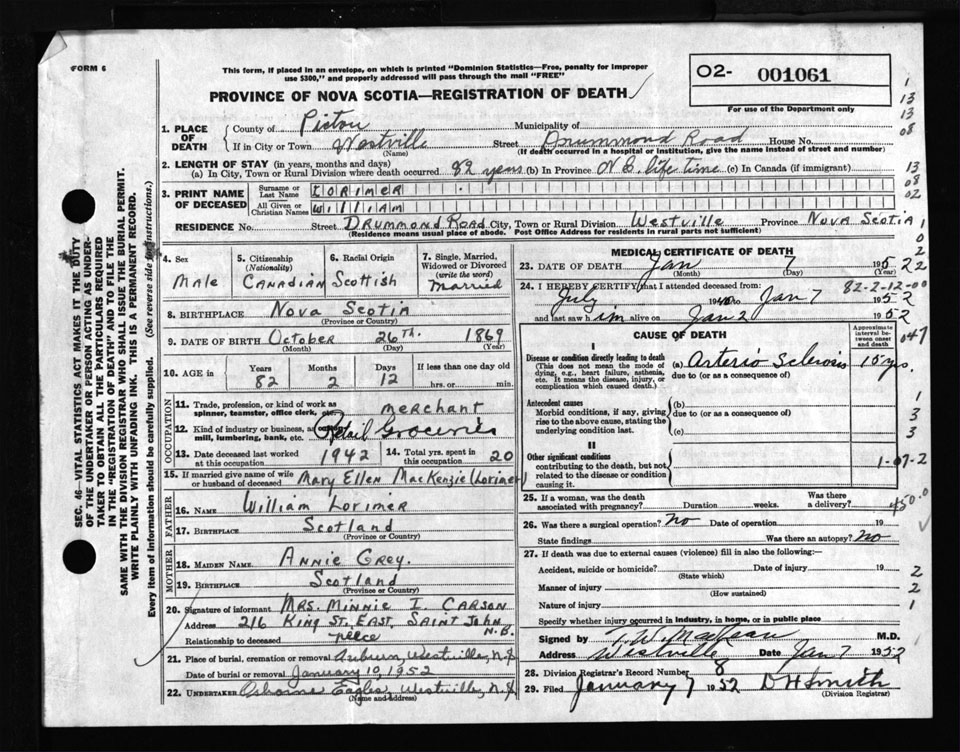 FORM 6
This form, if placed in an envelope, on which is printed "Dominion Statistics—Free, penalty for improper
use $300," and properly addressed will pass through the mail "FREE"
PROVINCE OF NOVA SCOTIA—REGISTRATION OF DEATH
O2- 001061
For use of the Department only
1
13
13
08
13
08
02
1
0
2
22
SEC. 46—VITAL STATISTICS ACT MAKES IT THE DUTY
OF THE UNDERTAKER OR PERSON ACTING AS UNDER-
TAKER TO OBTAIN ALL THE PARTICULARS REQUIRED
IN THE "REGISTRATION OF DEATH" AND TO FILE THE
SAME WITH THE DIVISION REGISTRAR WHO SHALL ISSUE THE BURIAL PERMIT.
WRITE PLAINLY WITH UNFADING INK. THIS IS A PERMANENT RECORD.
Every item of information should be carefully supplied. (See reverse side for instructions.)
1. PLACE OF DEATH
County of Pictou Municipality of
If in City or Town Westville Street Drummond Road House No.
(Name) (If death occurred in a hospital or institution, give the name instead of street and number)
2. LENGTH OF STAY (in years, months and days)
(a) In City, Town or Rural Division where death occurred 82 years (b) In Province N.S. life time (c) In Canada (if immigrant)
3. PRINT NAME OF DECEASED
Surname or Last Name LORIMER
All Given or Christian Names WILLIAM
RESIDENCE No. Street DRUMMOND ROAD City, Town or Rural Division Westville Province NOVA SCOTIA
(Residence means usual place of abode. Post Office Address for residents in rural parts not sufficient)
4. Sex Male
5. Citizenship (Nationality) CANADIAN
6. Racial Origin Scottish
7. Single, Married, Widowed or Divorced (write the word) Married
8. BIRTHPLACE NOVA SCOTIA
(Province or Country)
9. DATE OF BIRTH October 26th. 1869
(Month) (Day) (Year)
10. AGE in Years 82 Months 2 Days 12 If less than one day old hrs. or min.
OCCUPATION
11. Trade, profession or kind of work as spinner, teamster, office clerk, etc. merchant
12. Kind of industry or business, as mill, lumbering, bank, etc. Retail Groceries
13. Date deceased last worked at this occupation 1942
14. Total yrs. spent in this occupation 20
15. If married give name of wife or husband of deceased Mary Ellen MacKenzie (Lorimer
FATHER
16. NAME William Lorimer
17. BIRTHPLACE Scotland
(Province or Country)
MOTHER
18. MAIDEN NAME ANNIE Grey.
19. BIRTHPLACE Scotland
(Province or Country)
20. Signature of informant MRS. MINNIE I. CARSON
Address 216 KING ST. EAST, SAINT JOHN N.B.
Relationship to deceased neece
21. Place of burial, cremation or removal Auburn, Westville, N.S
Date of burial or removal January 10, 1952
22. UNDERTAKER Osborne Eagles, Westville, N.S
(Name and address)
MEDICAL CERTIFICATE OF DEATH
23. DATE OF DEATH Jan 7 1952
(Month) (Day) (Year)
24. I HEREBY CERTIFY that I attended deceased from 82-2-12-00
July 19 to Jan 7 1952
and last saw him alive on Jan 2 1952
CAUSE OF DEATH
Approximate interval between onset and death
047
I
Disease or condition directly leading to death
(This does not mean the mode of dying, e.g., heart failure, asthenia, etc. It means the disease, injury, or complication which caused death.)
(a) Arterio Sclerosis 15 yrs.
due to (or as a consequence of)
Antecedent causes
Morbid conditions, if any, giving rise to the above cause, stating the underlying condition last.
(b)
due to (or as a consequence of)
(c)
1
3
3
II
Other significant conditions
contributing to the death, but not related to the disease or condition causing it.
1-07-2
25. If a woman, was the death associated with pregnancy? Duration weeks. Was there a delivery?
450.0
26. Was there a surgical operation? No Date of operation 19
State findings Was there an autopsy? No
27. If death was due to external causes (violence) fill in also the following:—
Accident, suicide or homicide? Date of injury 19
(State which)
Manner of injury
(How sustained)
Nature of injury
2
2
1
Specify whether injury occurred in industry, in home, or in public place
Signed by M.D.
Address Westville Date Jan 7 1952
28. Division Registrar's Record Number 8
29. Filed January 7 1952 D H Smith
(Division Registrar)